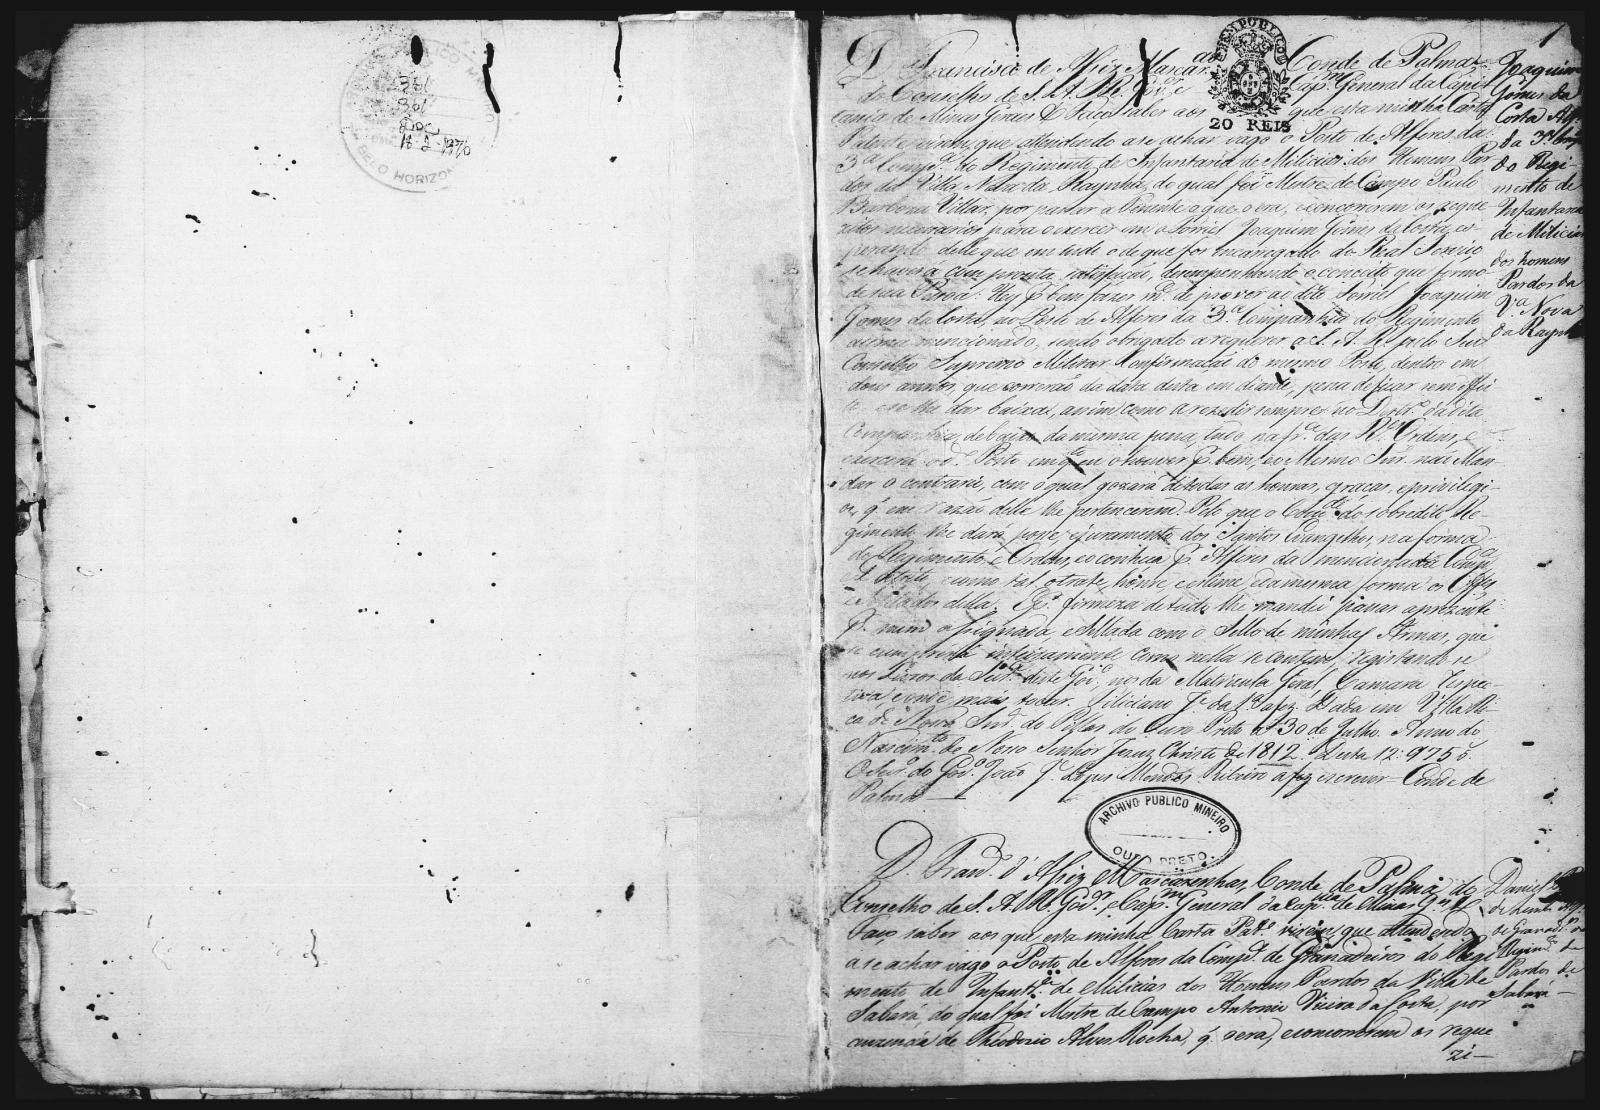 ARCHIVO PUBLICO MINEIRO
BELO HORIZON
301
Doc
18-2-1970
1
TEMPO PUBLICO
20 REIS
D. Francisco de Assiz Mascar Conde de Palma
do Conselho de S. A. R. Cap.m General da Capi
tania de Minas Geraes & Faço saber aos que esta minha Carta
Patente virem, que attendendo a se achar vago o Posto de Alferes da
3.a Comp.a do Regimento de Infantaria de Milicias dos Homens Par
dos da Villa Nova da Raynha, do qual foi Mestre de Campo Paulo
Barboza Villar, por passar a Tenente o que o era, e concorrem os reque
zitos necessarios para o exercer em o Furriel Joaquim Gomes da Costa, es
perando delle que em tudo o de que for encarregado do Real Serviço
se haverá com prompta satisfação, desempenhando o conceito que formo
de sua Pessoa: Hey p.r bem fazer m.ce de prover ao dito Furriel Joaquim
Gomes da Costa, no Posto de Alferes da 3.a Companhia do Regimento
acima mencionado, sendo obrigado a requerer a S. A. R. pelo Seu
Conselho Supremo Militar Confirmação do mesmo Posto, dentro em
dous annos, que correrão da data desta em diante, pena de ficar sem effei
to e se lhe dar baixa, assim como a rezidir sempre no Destr.o da dita
Companhia, debaixo da mesma pena, tudo na fr.a das R.es Ordens, e
exercerá o d.o Posto emq.to eu o houver p.r bem, e o Mesmo Snr. não Man
dar o contrario, com o qual gozará de todas as honras, graças, e privilegi
os, q. em razão delle lhe pertencerem. Pelo que o Com.te do sobredito Re
gimento lhe dará posse, e juramento dos Santos Evangelhos, na forma
do Regimento, e Ordens, e o conheça p.r Alferes da mencionada Comp.a
e como tal o trate, honre e estime e da mesma forma os Off.es
e Soldados della. E p.r firmeza de tudo lhe mandei passar a prezente
p.r mim assignada, e Sellada com o Sello de minhas Armas, que
se cumprirá inteiramente como nella se contem, registando-se
nos Livros da Secr.a deste Gov.o, nos da Matricula Geral, Camara respec
tiva, e onde mais tocar. Feliciano J.e da fez. Dada em Villa Ri
ca de Nossa Snr.a do Pillar do Ouro Preto a 30 de Julho. Anno do
Nascim.to de Nosso Senhor Jesus Christo de 1812. Desta 12:975
O Secr.o do Gov.o João J.e Lopes Mendes Ribeiro a fez escrever — Conde de
Palma
Joaquim
Gomes da
Costa Alf.
da 3.a Comp
do Regi-
mento de
Infantaria
de Milicias
dos homens
Pardos da
V.a Nova
da Raynha
ARCHIVO PUBLICO MINEIRO
OURO PRETO
D. Fran.co d'Assiz Mascarenhas, Conde de Palma, do
Conselho de S. A. R. Gov.or, e Cap.m General da Cap.nia de Minas G.es &
Faço saber aos que esta minha Carta Pat.e virem, que attendendo
a se achar vago o Posto de Alferes da Comp.a de Granadeiros do Regi
mento de Infant.a de Milicias dos Homens Pardos da Villa de
Sabará, do qual foi Mestre de Campo Antonio Vieira da Costa, por
auzencia de Theodozio Alves Rocha, q. o era, e concorrem os reque
zi-
Daniel
de
de Granad.
Regim.to de
Pardos de
Sabará